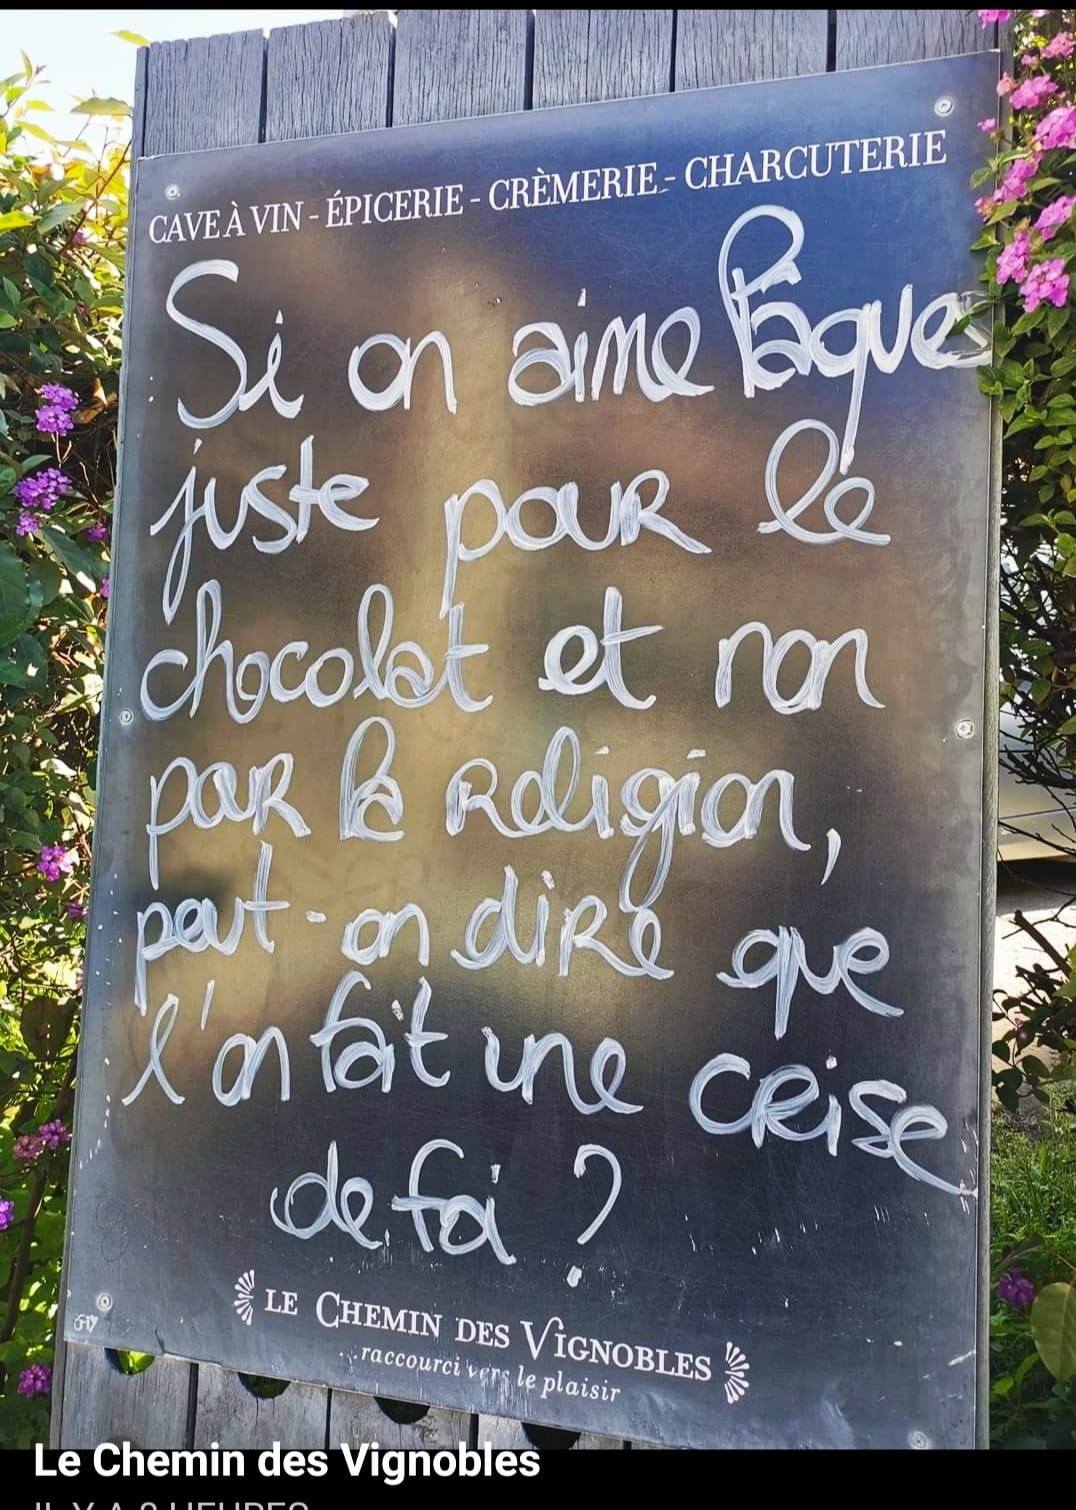 CAVE À VIN - ÉPICERIE - CRÈMERIE - CHARCUTERIE
Si on aime Paques
juste pour le
chocolat et non
pour la religion,
peut-on dire que
l'on fait une crise
de foi ?
LE CHEMIN DES VIGNOBLES
...raccourci vers le plaisir
Le Chemin des Vignobles